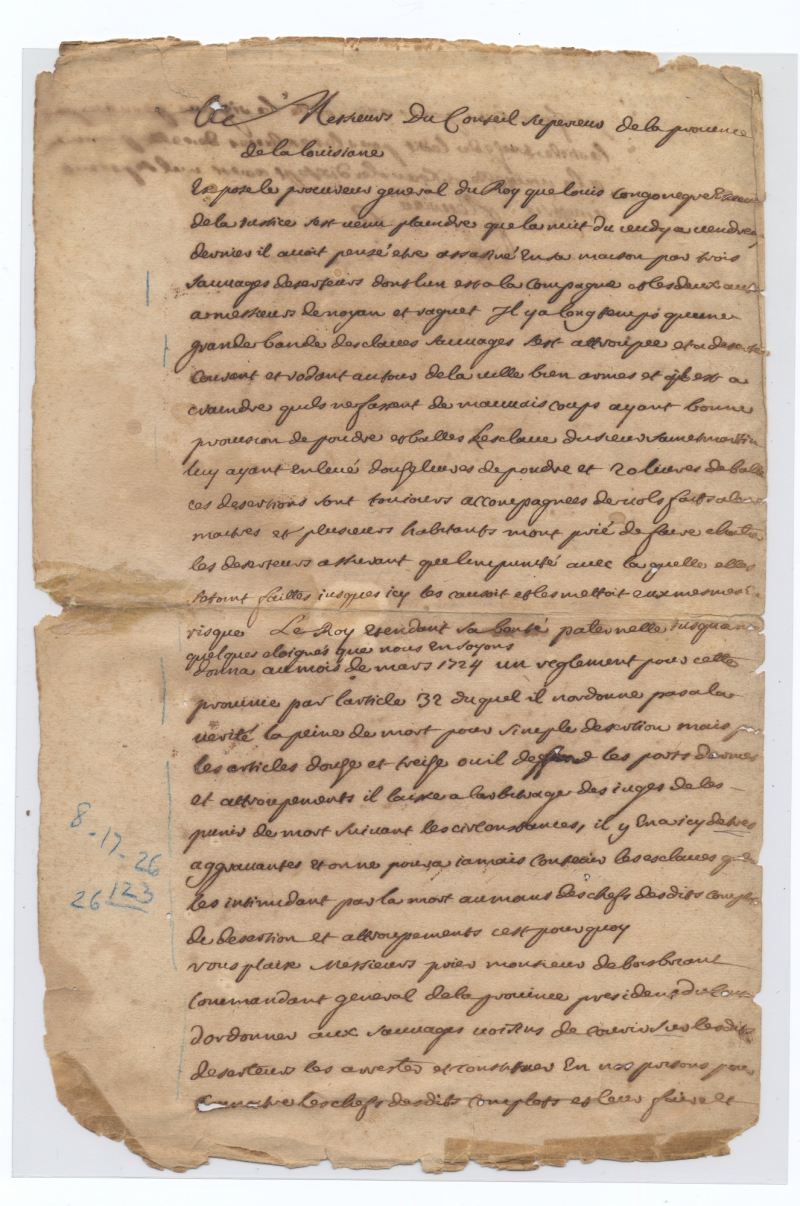 A Messieurs Du Conseil superieur de la province
de la louisiane
Expose le procureur general du Roy que louis congo negre
de la justice sest venu plaindre que la nuit du jeudy a vendredy
dernier il auoit pensé etre assasiné En sa maison par trois
sauuages deserteurs dont lun est a la compagnie et les deux
a messieurs de noyan et raguet Il y a long temps quune
grande bande desclaues sauuages sest attroupée et a deserté
courent et rodant autour de la uille bien armes et il est a
craindre quils ne fassent de mauuais coups ayant bonne
prouision de poudre et balles Lesclaue du sieur
luy ayant Enleué douze liures de poudre et 20 liures de balle
ces desertions sont toujours accompagnées de uols faits a leurs
maitres et plusieurs habitants mont prié de faire
les deserteurs assurant que limpunité auec la quelle elles
setoint faittes jusques icy les causoit et les mettoit eux mesmes
risque Le Roy Etendant sa bonté paternelle jusqua
quelques eloignés que nous En soyons
donna au mois de mars 1724 un reglement pour cette
prouince par larticle 32 duquel il nordonne pas a la
uerité la peine de mort pour simple desertion mais
les articles douze et treize ou il deffend les ports darmes
et attroupements il laisse a larbitrage des juges de les
punir de mort suiuant les circonstances, il y En a icy de tres
aggrauantes et on ne poura jamais contenir les esclaues
les intimidant par la mort au moins des chefs desdits complots
de desertion et attroupements cest pour quoy
vous plaise Messieurs prier monsieur de boisbriant
Commandant general de la prouince president du
dordonner aux sauuages uoisins de courir sur lesdits
deserteurs les arrester et constituer En nos prisons pour
les chefs desdits complots et leur faire et
8-17-26
26 123